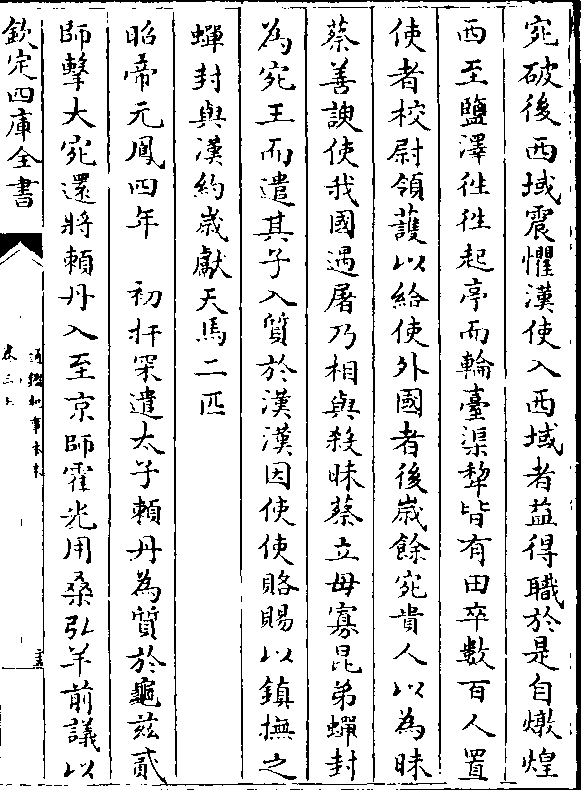 宛破後西域震懼漢使入西域者益得職於是自燉煌
西至鹽澤徃徃起亭而輪臺渠犂皆有田卒數百人置
使者校尉領護以給使外國者後嵗餘宛貴人以為昧
蔡善諛使我國遇屠乃相與殺昧蔡立毋寡昆弟蟬封
為宛王而遣其子入質於漢漢因使使賂賜以鎮撫之
蟬封與漢約嵗獻天馬二匹
昭帝元鳳四年　初扜罙遣太子頼丹為質於龜兹貳
師擊大宛還將頼丹入至京師霍光用桑弘羊前議以
欽定四庫全書
通鑑紀事本末
卷三上